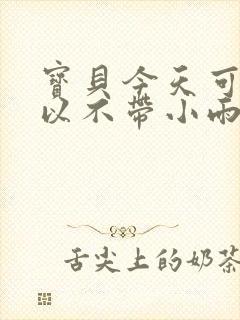 寶貝今天可
以不帶小雨
舌尖上的奶茶